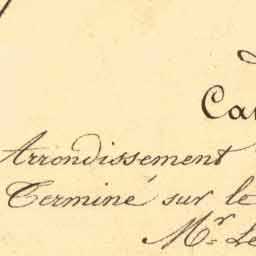 Ca
Arrondissement
Terminé sur le
Mr. Le